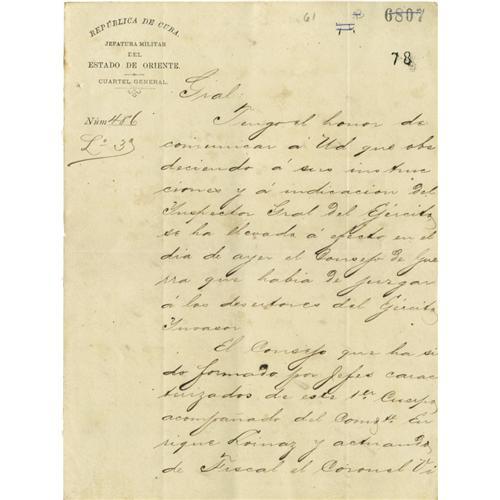 61
6807
78
REPÚBLICA DE CUBA.
JEFATURA MILITAR
DEL
ESTADO DE ORIENTE.
CUARTEL GENERAL.
Núm 486
Lº 3º
Gral:
Tengo el honor de
comunicar á Ud que obe
deciendo á sus instruc
ciones y á indicacion del
Inspector Gral del Ejército,
se ha llevado á efecto en el
dia de ayer el Consejo de Gue
rra que habia de juzgar
á los desertores del Ejército
Invasor.
El Consejo que ha si
do formado por Jefes carac
terizados de este 1er Cuerpo,
acompañado del Com
rique Loinaz y actuando
de Fiscal el Coronel Vi